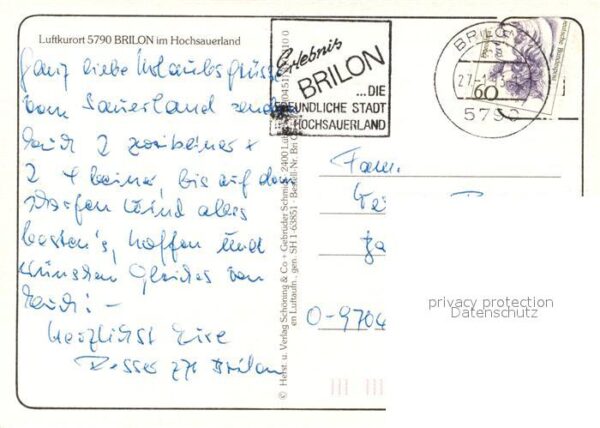 Luftkurort 5790 BRILON im Hochsauerland
Ganz liebe Urlaubsgrüsse
vom Sauerland senden
Euch 2 zweibeiner +
2 4 beiner, bis auf dem
starken Wind alles
besten's, hoffen und
wünschen Gleiches von
Euch! –
Herzlichst Eure
Brilon
© Herst. u. Verlag Schöning & Co + Gebrüder Schmidt, 2400
en Luftaufn., gen. SH 1-63851 · Bestell-Nr. Bri
Erlebnis
BRILON
...DIE
FREUNDLICHE STADT
HOCHSAUERLAND
BRILON
27.-1
5790
60
Fam.
O-9704
privacy protection
Datenschutz